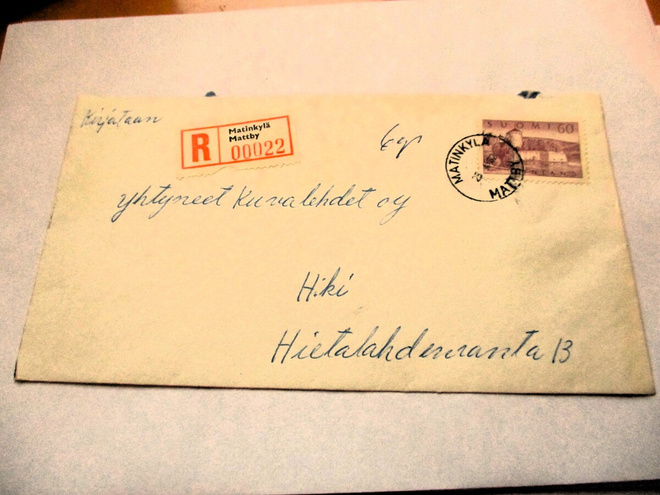 Kirjataan
R
Matinkylä
Mattby
00022
6 gr
SUOMI 60
MATINKYLÄ
MATTBY
Yhtyneet Kuvalehdet oy
Hiki
Hietalahdenranta 13